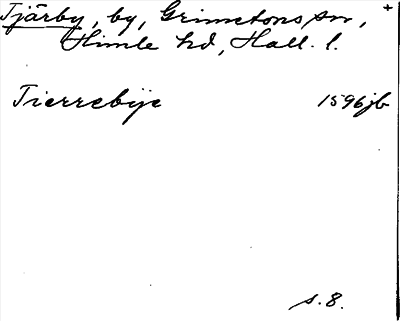 Tjärby, by, Grimetons sn, +
Himle hd, Hall. l.
Tierrebÿe 1596 jb
s. 8.